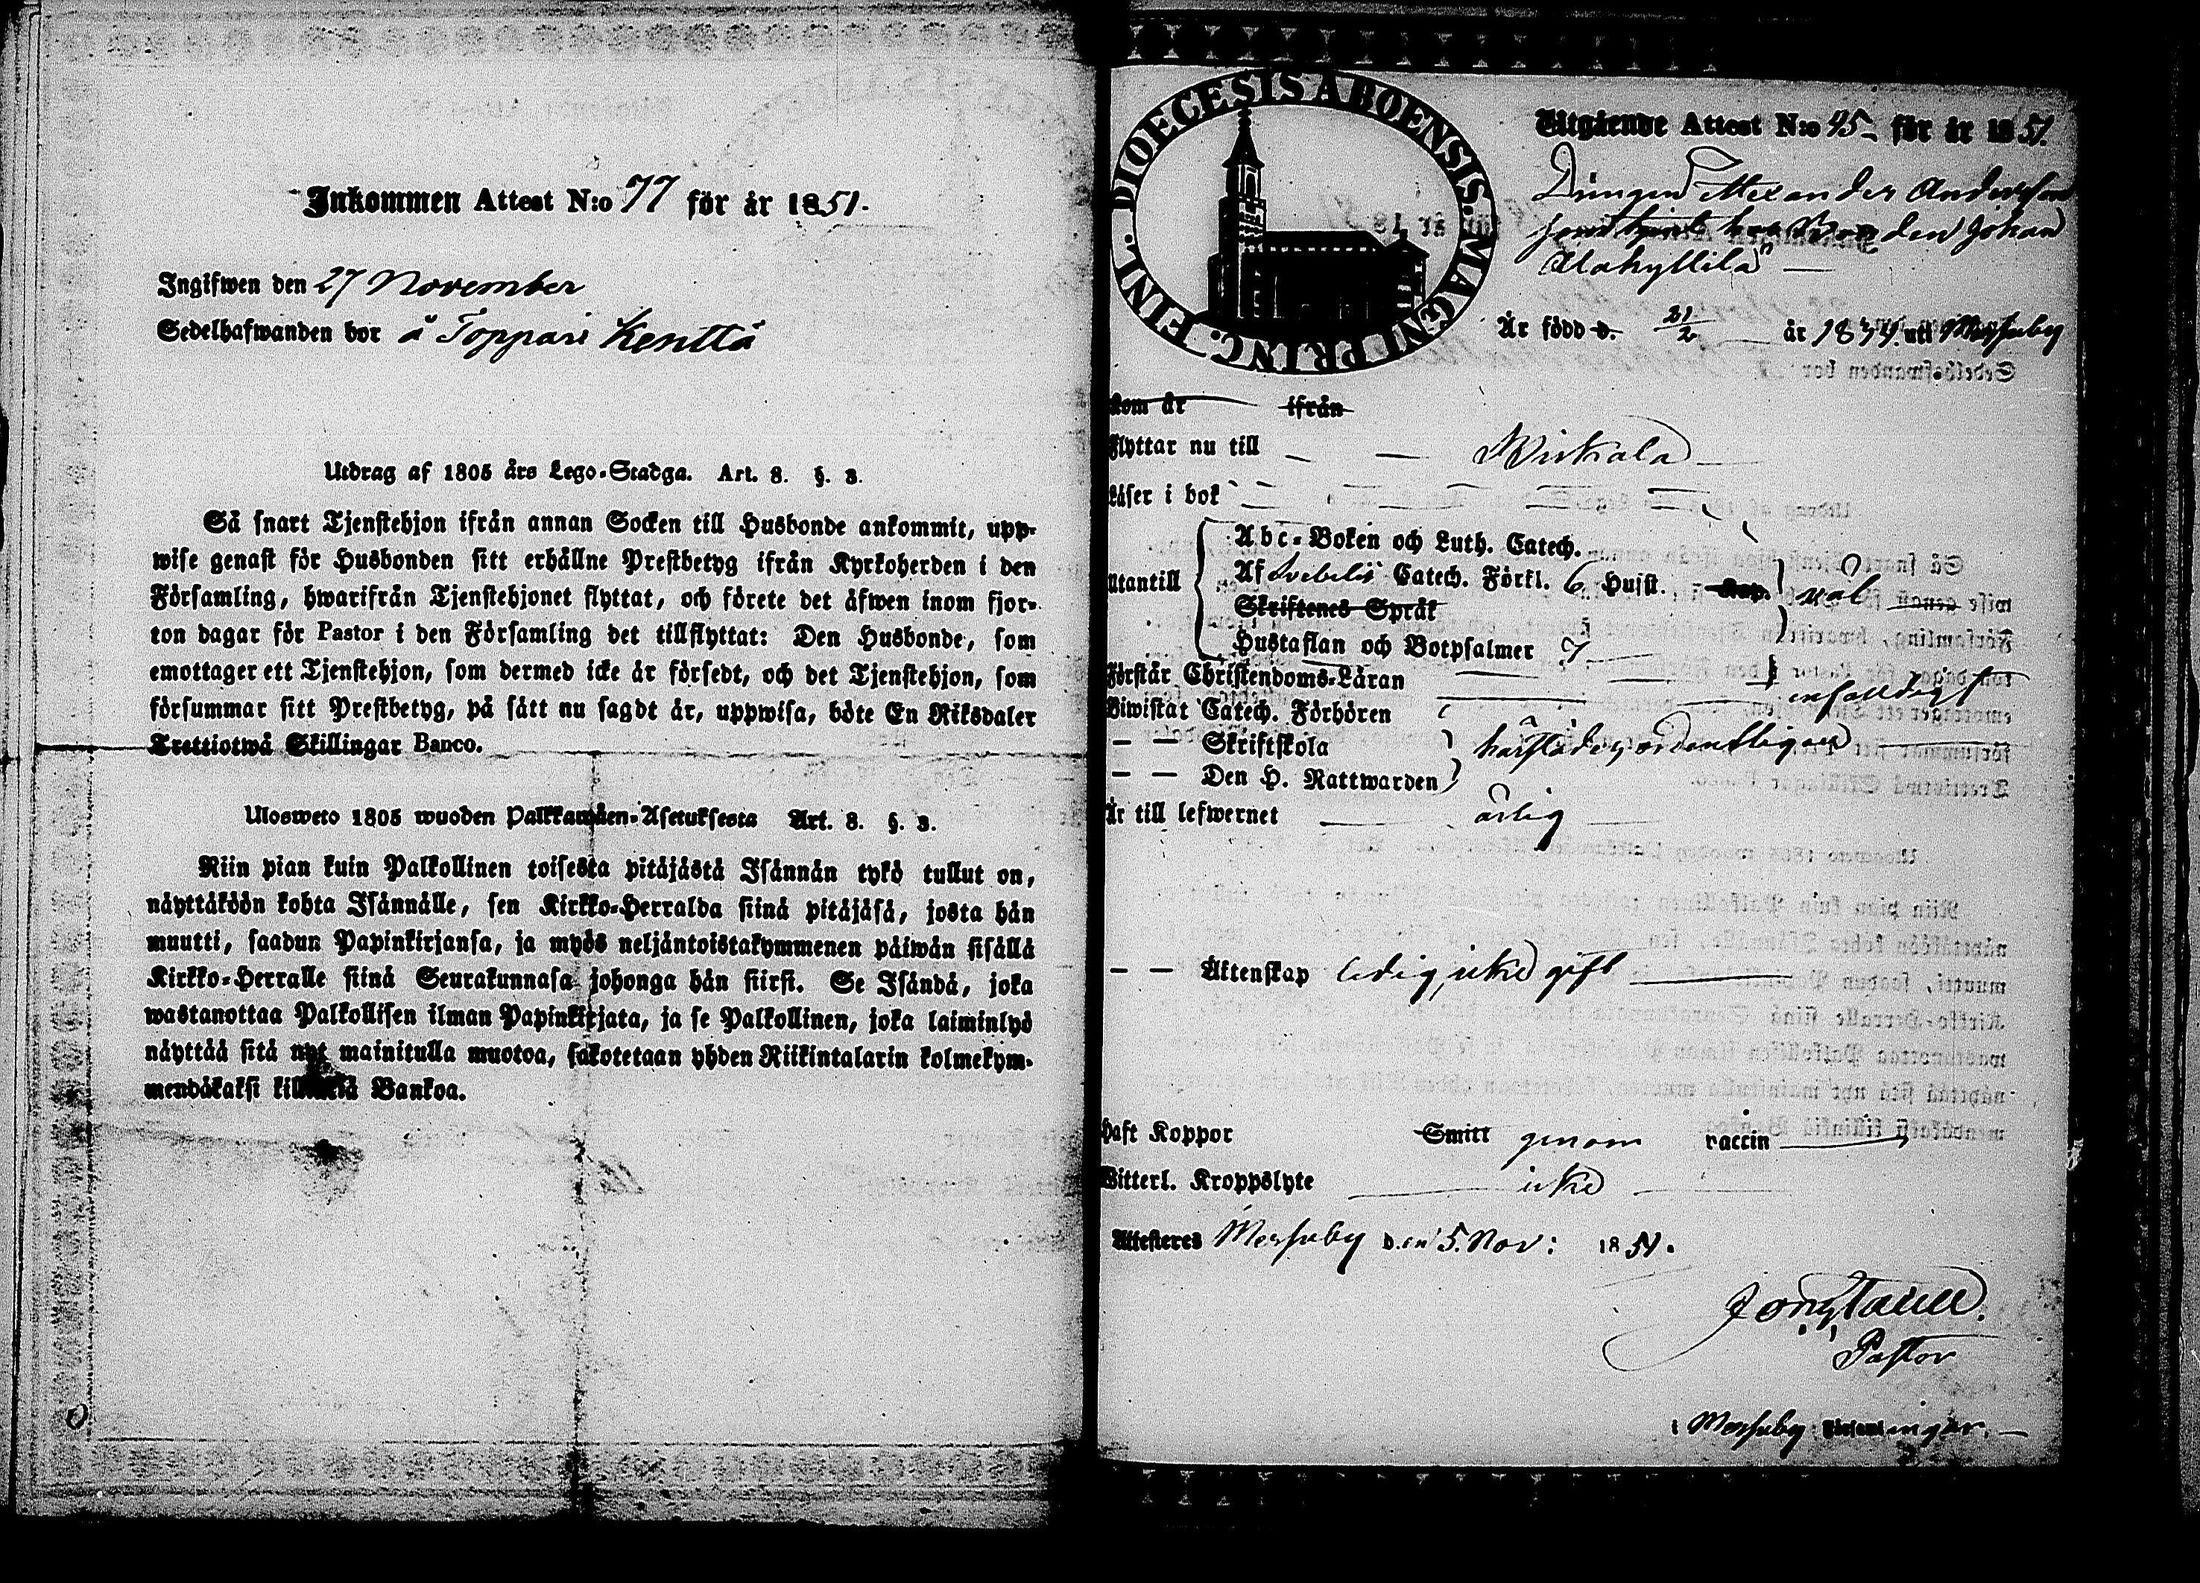 Inkommen Attest N:o 77 för år 1851.
Ingifwen den 27 November
Sedelhafwanden bor å Toppari Kenttä
Utdrag af 1805 års Lego-Stadga. Art. 8. §. 3.
Så snart Tjenstehjon ifrån annan Socken till Husbonde ankommit, upp-
wise genast för Husbonden sitt erhållne Prestbetyg ifrån Kyrkoherden i den
Församling, hwarifrån Tjenstehjonet flyttat, och förete det äfwen inom fjor-
ton dagar för Pastor i den Församling det tillflyttat: Den Husbonde, som
emottager ett Tjenstehjon, som dermed icke är försedt, och det Tjenstehjon, som
försummar sitt Prestbetyg, på sätt nu sagdt är, uppwisa, böte En Riksdaler
Trettiotwå Skillingar Banco.
Ulosweto 1805 wuoden Palkkawäen-Asetuksesta Art. 8. §. 3.
Niin pian kuin Palkollinen toisesta pitäjästä Isännän tykö tullut on,
näyttäköön kohta Isännälle, sen Kirkko-Herralda siinä pitäjäsä, josta hän
muutti, saadun Papinkirjansa, ja myös neljäntoistakymmenen päiwän sisällä
Kirkko-Herralle siinä Seurakunnasa johonga hän siirsi. Se Isändä, joka
wastanottaa Palkollisen ilman Papinkirjata, ja se Palkollinen, joka laiminlyö
näyttää sitä nyt mainitulla muotoa, sakotetaan yhden Riikintalarin kolmekym-
mendäkaksi killinkiä Bankoa.
FINL. DIOECESIS ABOENSIS. MAGNI PRINC.
Utgående Attest N:o 45 för år 1851.
Drängen Alexander Andersson
som tjent hos Bonden Johan
Alakyllilä
Är född d. 21/2 år 1834 uti Messuby
kom år ifrån
Flyttar nu till Wirkala
Läser i bok
Utantill
Abc-Boken och Luth. Catech.
Af Svebelii Catech. Förkl. 6 Hufst. Kap. väl
Skriftenes Språk
Hustaflan och Botpsalmer 7
Förstår Christendoms-Läran enfaldigt
Biwistat Catech. Förhören
— — Skriftskola härstädes ordentligen
— — Den H. Nattwarden
Är till lefwernet ärlig
— — Äktenskap ledig, icke gift
Haft Koppor Smitt genom vaccin
Witterl. Kroppslyte icke
Attesteras Messuby den 5. Nov: 1851.
Pastor
i Messuby Församlingar.